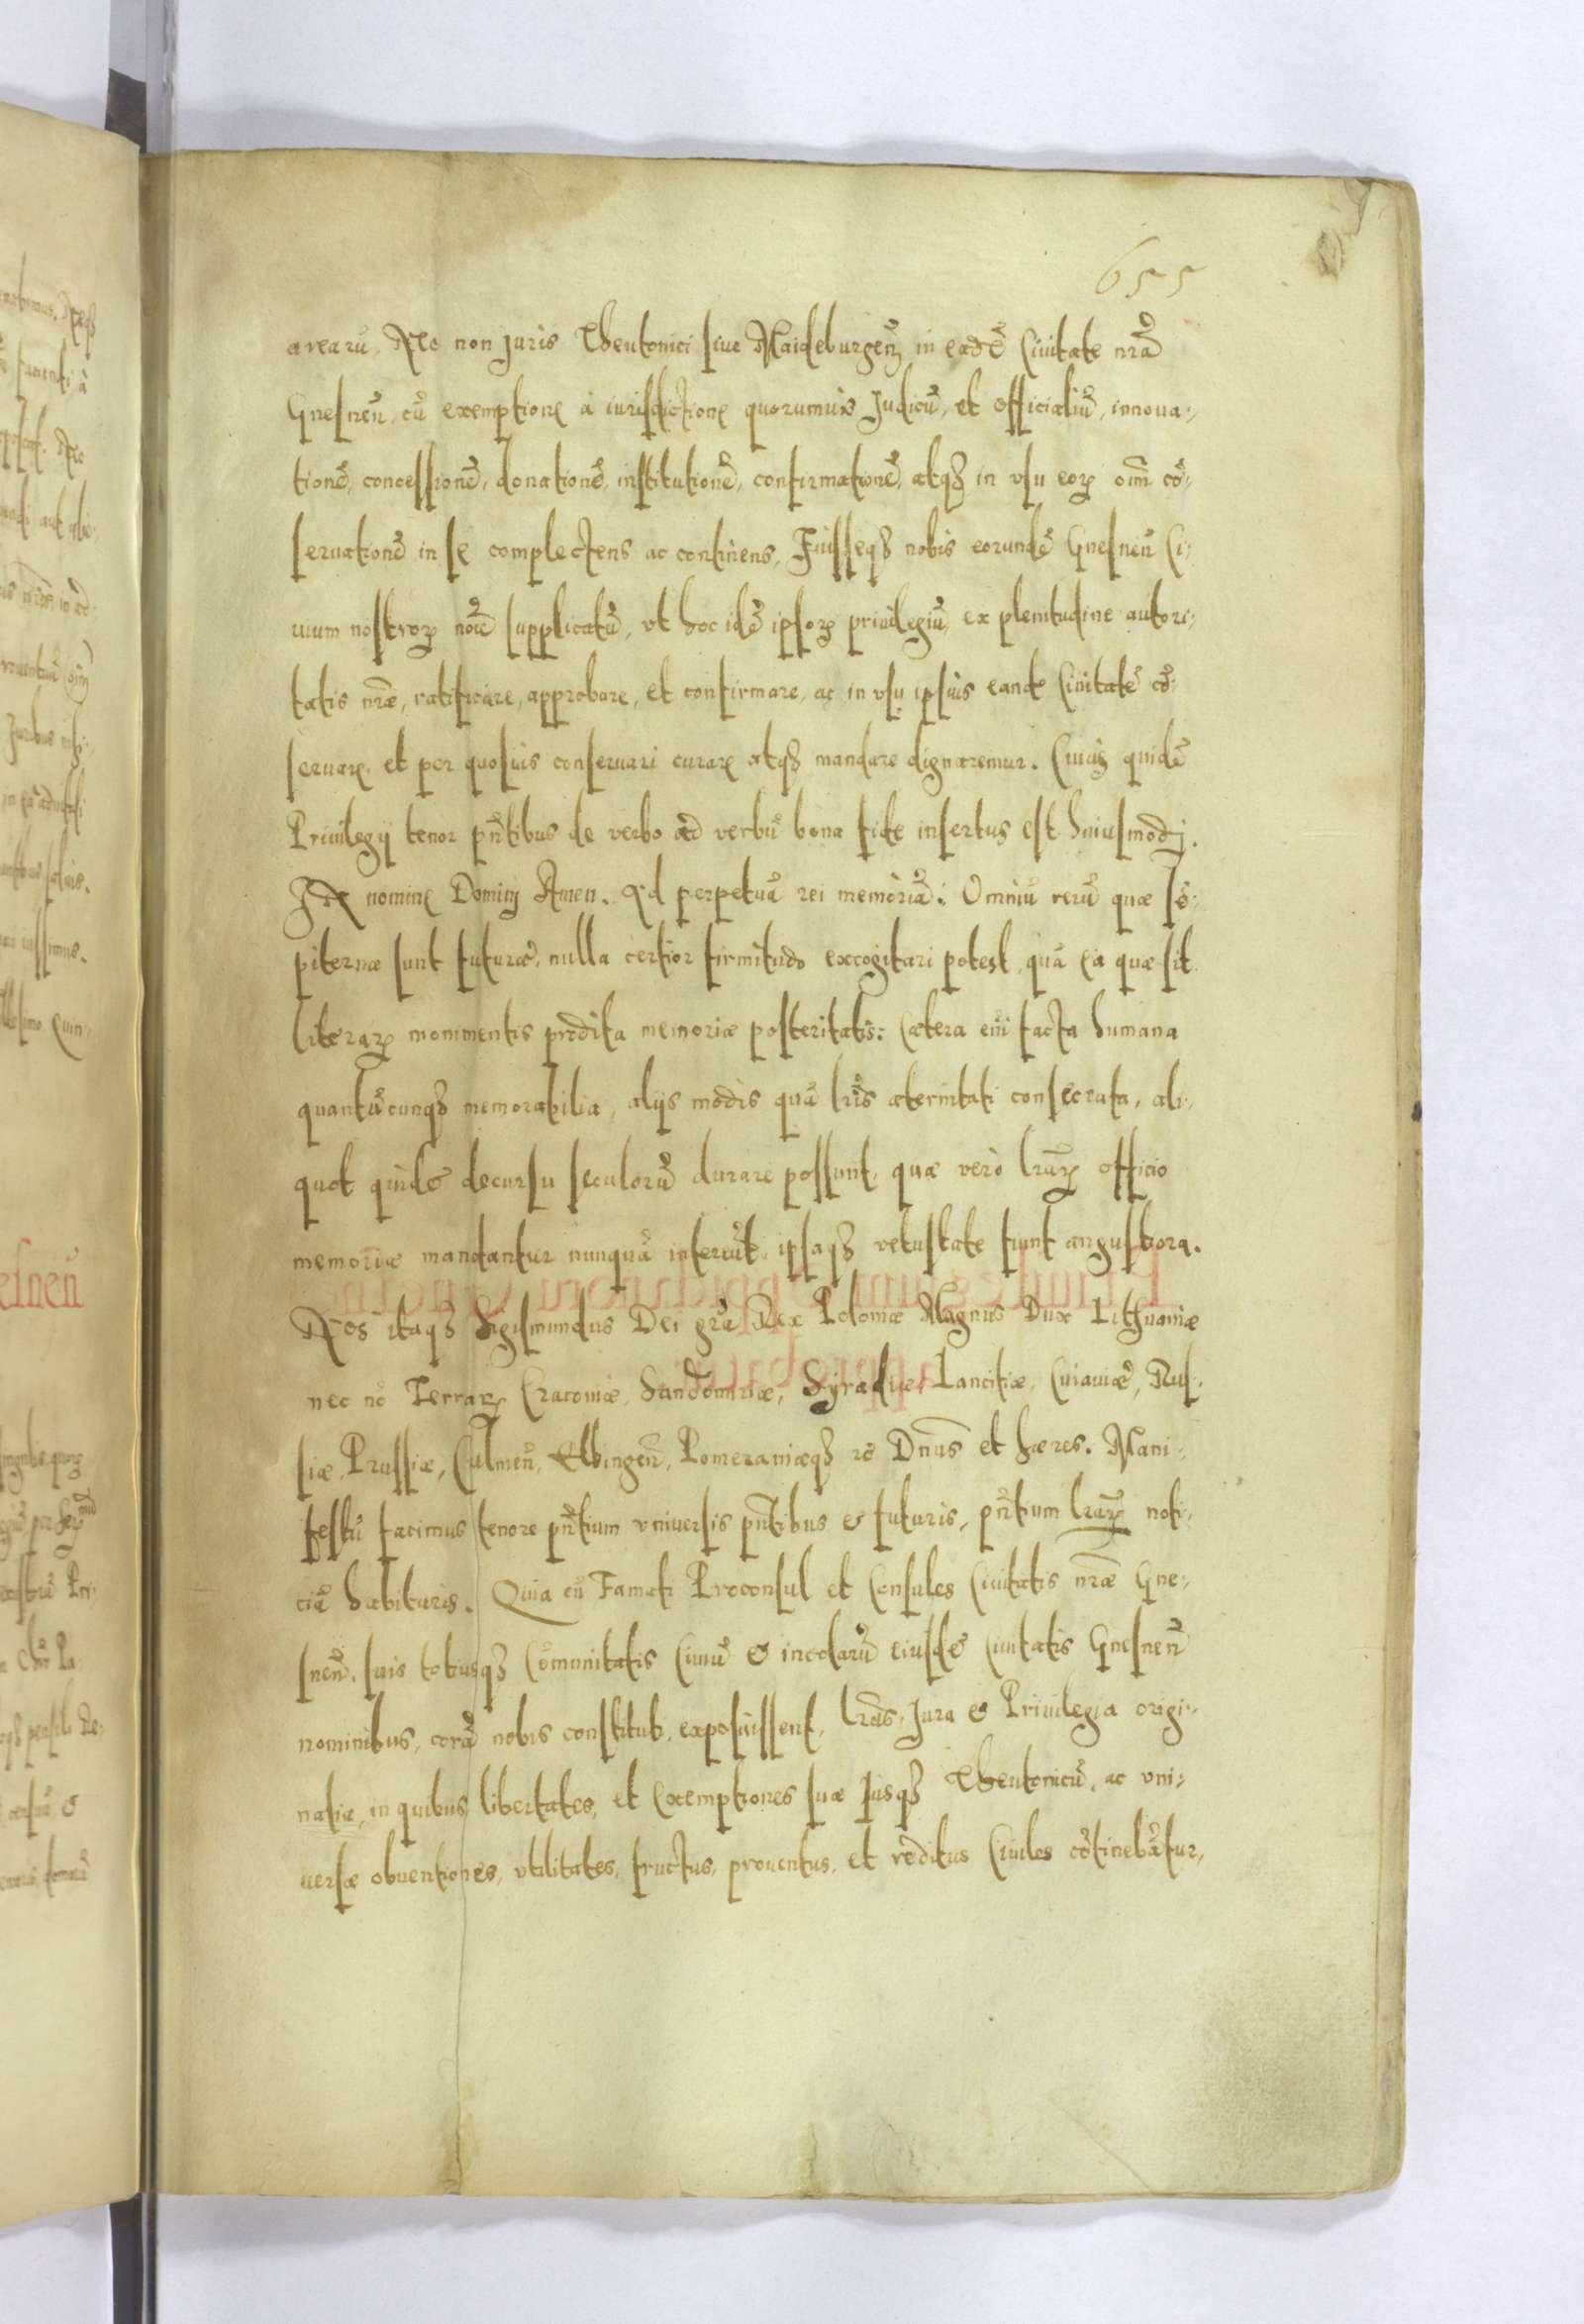 655
arearū, Nec non Juris Theutonici siue Maideburgen̄ in eadē Ciuitate nr̄a
Gnesnen̄, cū exemptione à iurisdictione quorumuis Judicū, et officialiū, innoua-
tionē, concessionē, donationē, institutionē, confirmationē, atq3 in vsu eorꝫ om̄i cō-
seruationē in se complectens ac continens, Fuisseq3 nobis eorundē Gnesnen̄ Ci-
uium nostrorꝫ noīe supplicatū, vt hoc idē ipsorꝫ priuilegiū, ex plenitudine autori-
tatis nr̄æ, ratificare, approbare, et confirmare, ac in vsu ipsius eandē Ciuitatē cō-
seruare, et per quosuis conseruari curare atq3 mandare dignaremur. Cuius quidē
Priuilegij tenor pn̄tibus de verbo ad verbū bona fide insertus est huiusmodj.
IN nomine Dominj Amen. Ad perpetuā rei memoriā. Omniū rerū quæ sē-
piternæ sunt futuræ, nulla certior firmitudo excogitari potest, quā ea quæ fit
literarꝫ monimentis prędita memoriæ posteritatis: Cætera em̄ facta humana
quantūcunq3 memorabilia, alijs modis quā lr̄is æternitati consecrata, ali-
quot quidē decursu seculorū durare possunt, quæ verò lr̄arꝫ officio
memoriæ mandantur nunquā intereūt, ipsaq3 vetustate fiunt angustiora.
Nos itaq3 Sigismundus Dei gr̄a Rex Poloniæ Magnus Dux Lithuaniæ
nec nō Terrarꝫ Cracouiæ, Sandomiriæ, Syradiæ, Lancitiæ, Cuiauiæ, Rus-
siæ, Prussiæ, Culmen̄, Elbingen̄, Pomeraniæq3 rē Dn̄us et hæres. Mani-
festū facimus tenore pn̄tium vniuersis pn̄tibus & futuris, pn̄tium lr̄arꝫ noti-
ciā habituris. Quia cū Famati Proconsul et Consules Ciuitatis nr̄æ Gne-
snen̄, suis totiusq3 Cōmunitatis Ciuiū & incolarū eiusdē Ciuitatis Gnesnen̄
nominibus, corā nobis constituti, exposuissent, lr̄as, Jura & Priuilegia origi-
nalia, in quibus libertates, et Exemptiones suæ Jusq3 Theutonicū, ac vni-
uersæ obuentiones, vtilitates, fructus, prouentus, et reditus Ciuiles cōtinebātur,